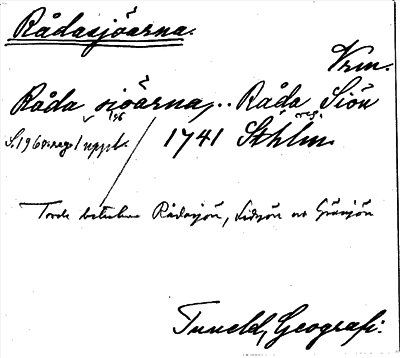 Rådasjöarna.
Vrm.
Råda sjöarna,.. Råda Siön
1741 Sthlm.
Torde beteckna Rådasjön, Lidsjön och Gräsjön
Tuneld, Geografi: